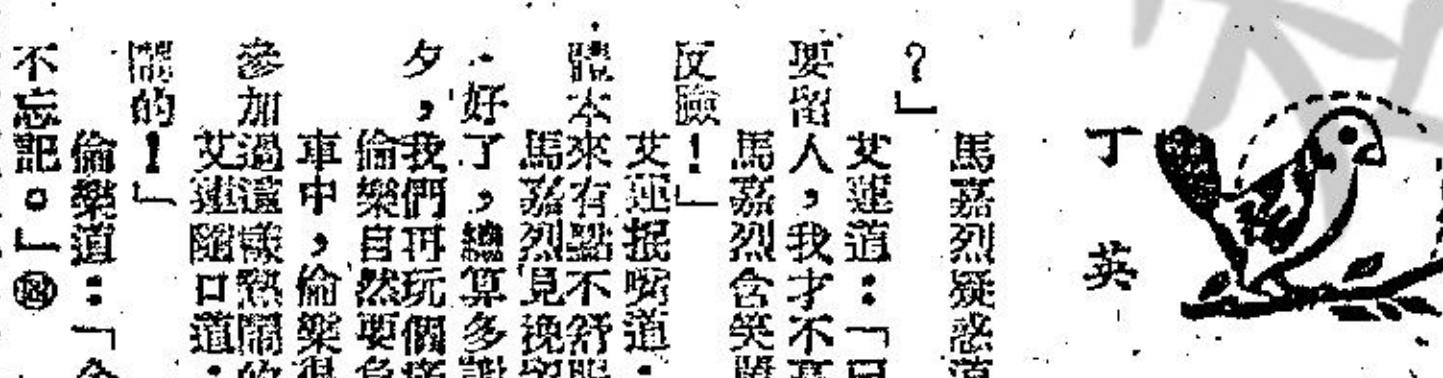 丁英
馬嘉烈疑惑道
?」
艾蓮道:「
要留人,我才不高
馬嘉烈含笑
反險!」
艾蓮抿嘴道:
體本來有點不舒服
馬嘉烈見挽留
好了,總算多謝
夕,我們再玩個痛
倫樂自然要負
車中,倫樂很
參加過這樣熱鬧的
艾蓮隨口道:
鬧的!」
倫樂道:「今
不忘記。」